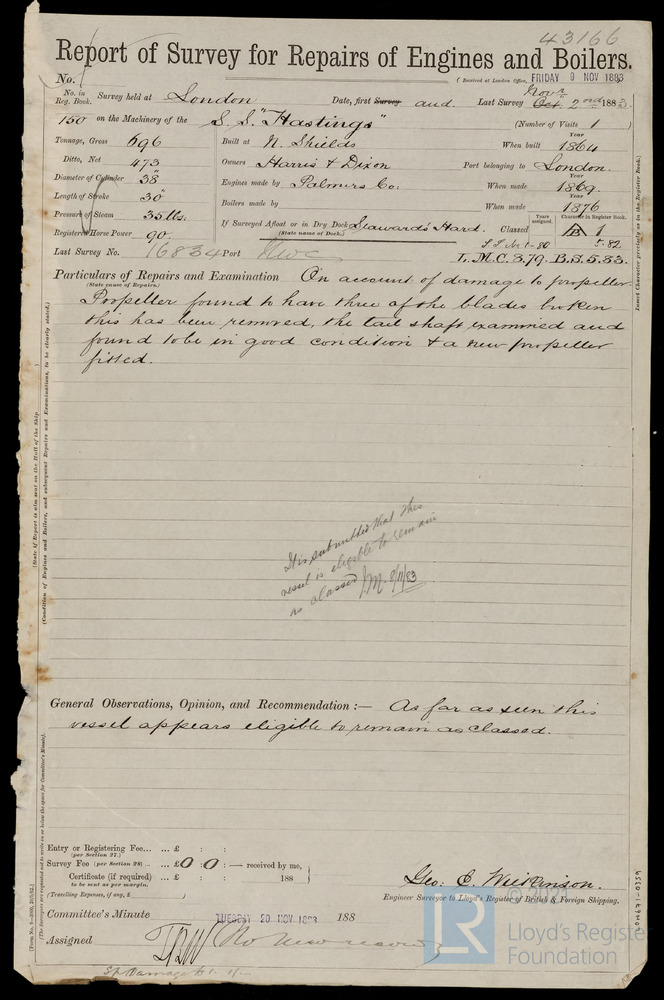 43166
Report of Survey for Repairs of Engines and Boilers.
(Received at London Office, FRIDAY 9 NOV 1883
No.
No. in Reg. Book. Survey held at London Date, first Survey and Last Survey Novr Oct 2nd 1883.
150 on the Machinery of the S. S. "Hastings" (Number of Visits 1)
Tonnage, Gross 696 Built at N. Shields When built Year 1864
Ditto, Net 473 Owners Harris & Dixon Port belonging to London.
Diameter of Cylinder 38" Engines made by Palmers Co: When made Year 1869.
Length of Stroke 30" Boilers made by When made Year 1876
Pressure of Steam 35 lbs. If Surveyed Afloat or in Dry Dock Seawards Hard. Classed Years assigned. Character in Register Book. 1
(State name of Dock.)
Registered Horse Power 90. 5.82
Last Survey No. 16834 Port Nwc L.M.C. 3.79. B.S. 5.83.
Particulars of Repairs and Examination On account of damage to propeller
(State cause of Repairs.)
Propeller found to have three of the blades broken
this has been removed, the tail shaft examined and
found to be in good condition & a new propeller
fitted.
It is submitted that this
vessel is eligible to remain
as classed J.M. 8/11/83
General Observations, Opinion, and Recommendation :— As far as seen this
vessel appears eligible to remain as classed.
Entry or Registering Fee... ... £ : :
(per Section 27.)
Survey Fee (per Section 28) ... ... £0 : 0 : — received by me,
Certificate (if required) ... £ : : 188
to be sent as per margin.
(Travelling Expenses, if any, £ )
Geo: E. Wilkinson.
Engineer Surveyor to Lloyd's Register of British & Foreign Shipping.
Committee's Minute TUESDAY 20 NOV 1883 188
Assigned
Insert Character precisely as in the Register Book.)
(State if Report is also sent on the Hull of the Ship
(Condition of Engines and Boilers, and subsequent Repairs and Examinations, to be clearly stated.)
LR
© 2021
Lloyd's Register
Foundation